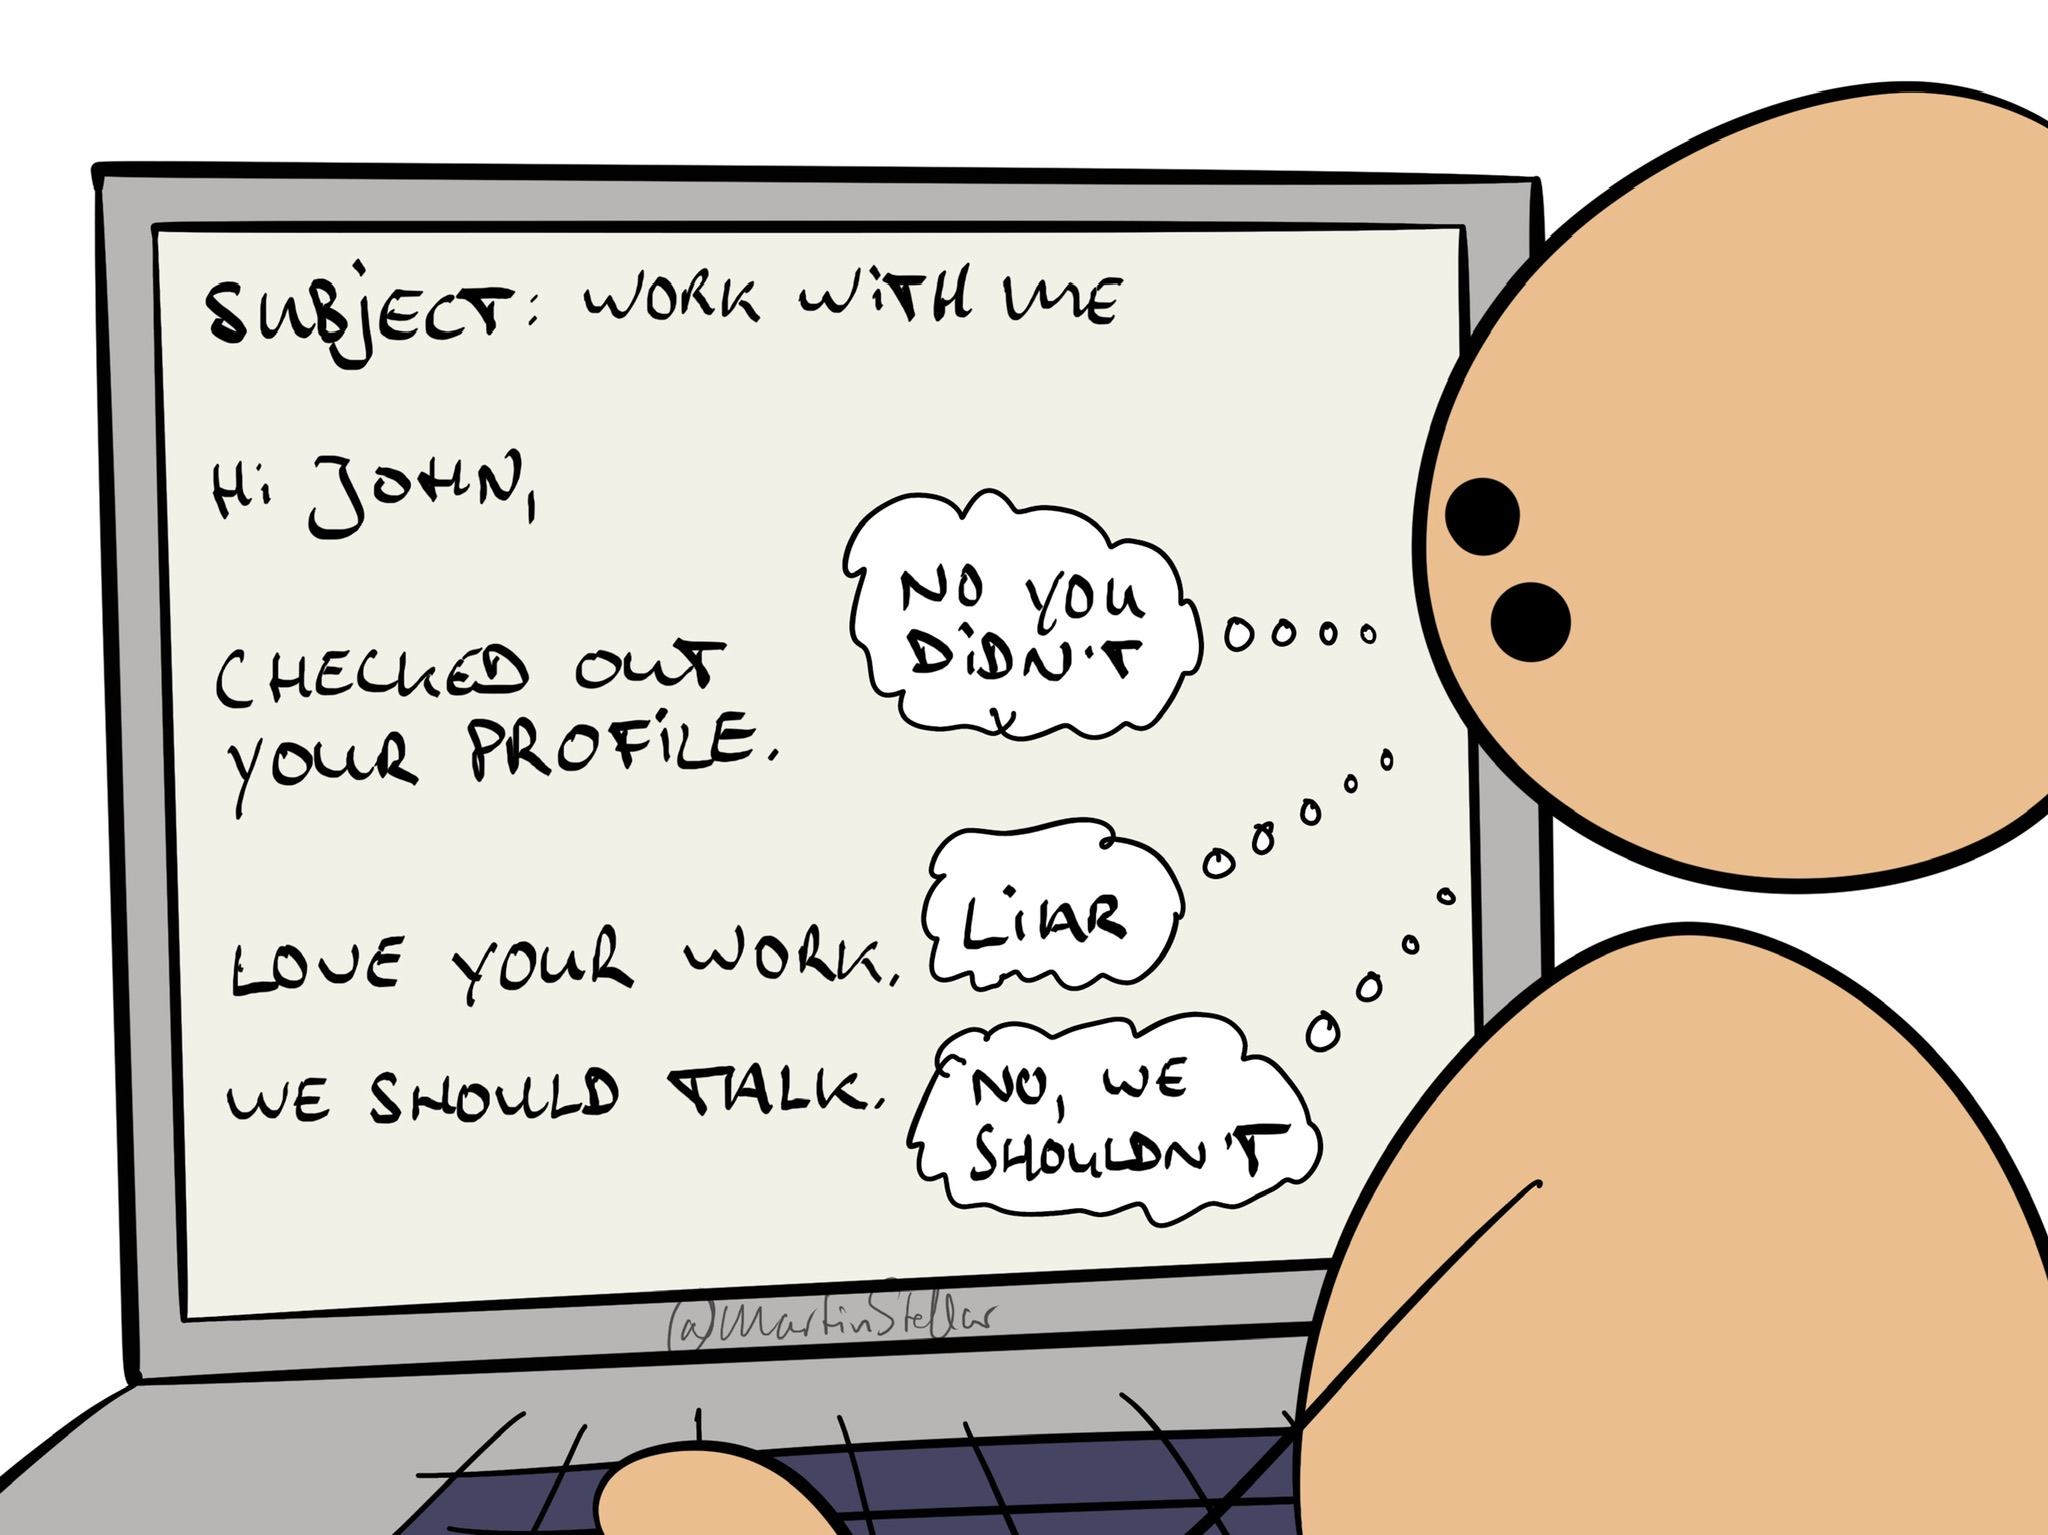 SUBJECT: WORK WITH ME
Hi JOHN,
CHECKED OUT
YOUR PROFILE.
NO YOU
DIDN'T
LOVE YOUR WORK.
LIAR
WE SHOULD TALK.
NO, WE
SHOULDN'T
@MartinStellar